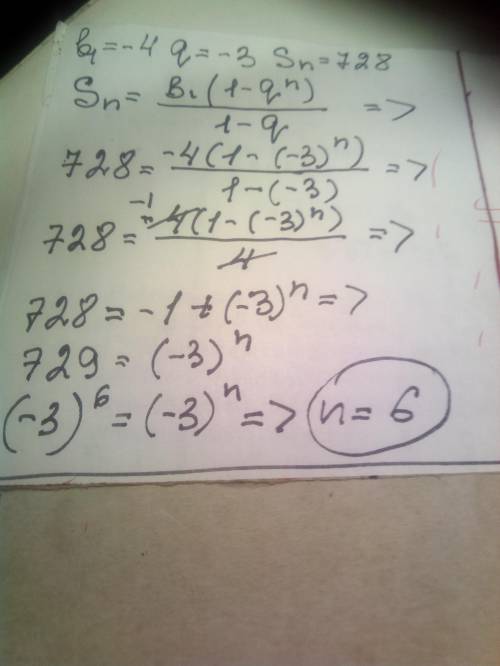 b₁ = -4 q = -3 Sn = 728
Sn = B₁(1-qⁿ) / 1-q =>
728 = -4(1-(-3)ⁿ) / 1-(-3) =>
728 = -1 4(1-(-3)ⁿ) / 4 =>
728 = -1 + (-3)ⁿ =>
729 = (-3)ⁿ
(-3)⁶ = (-3)ⁿ => n = 6